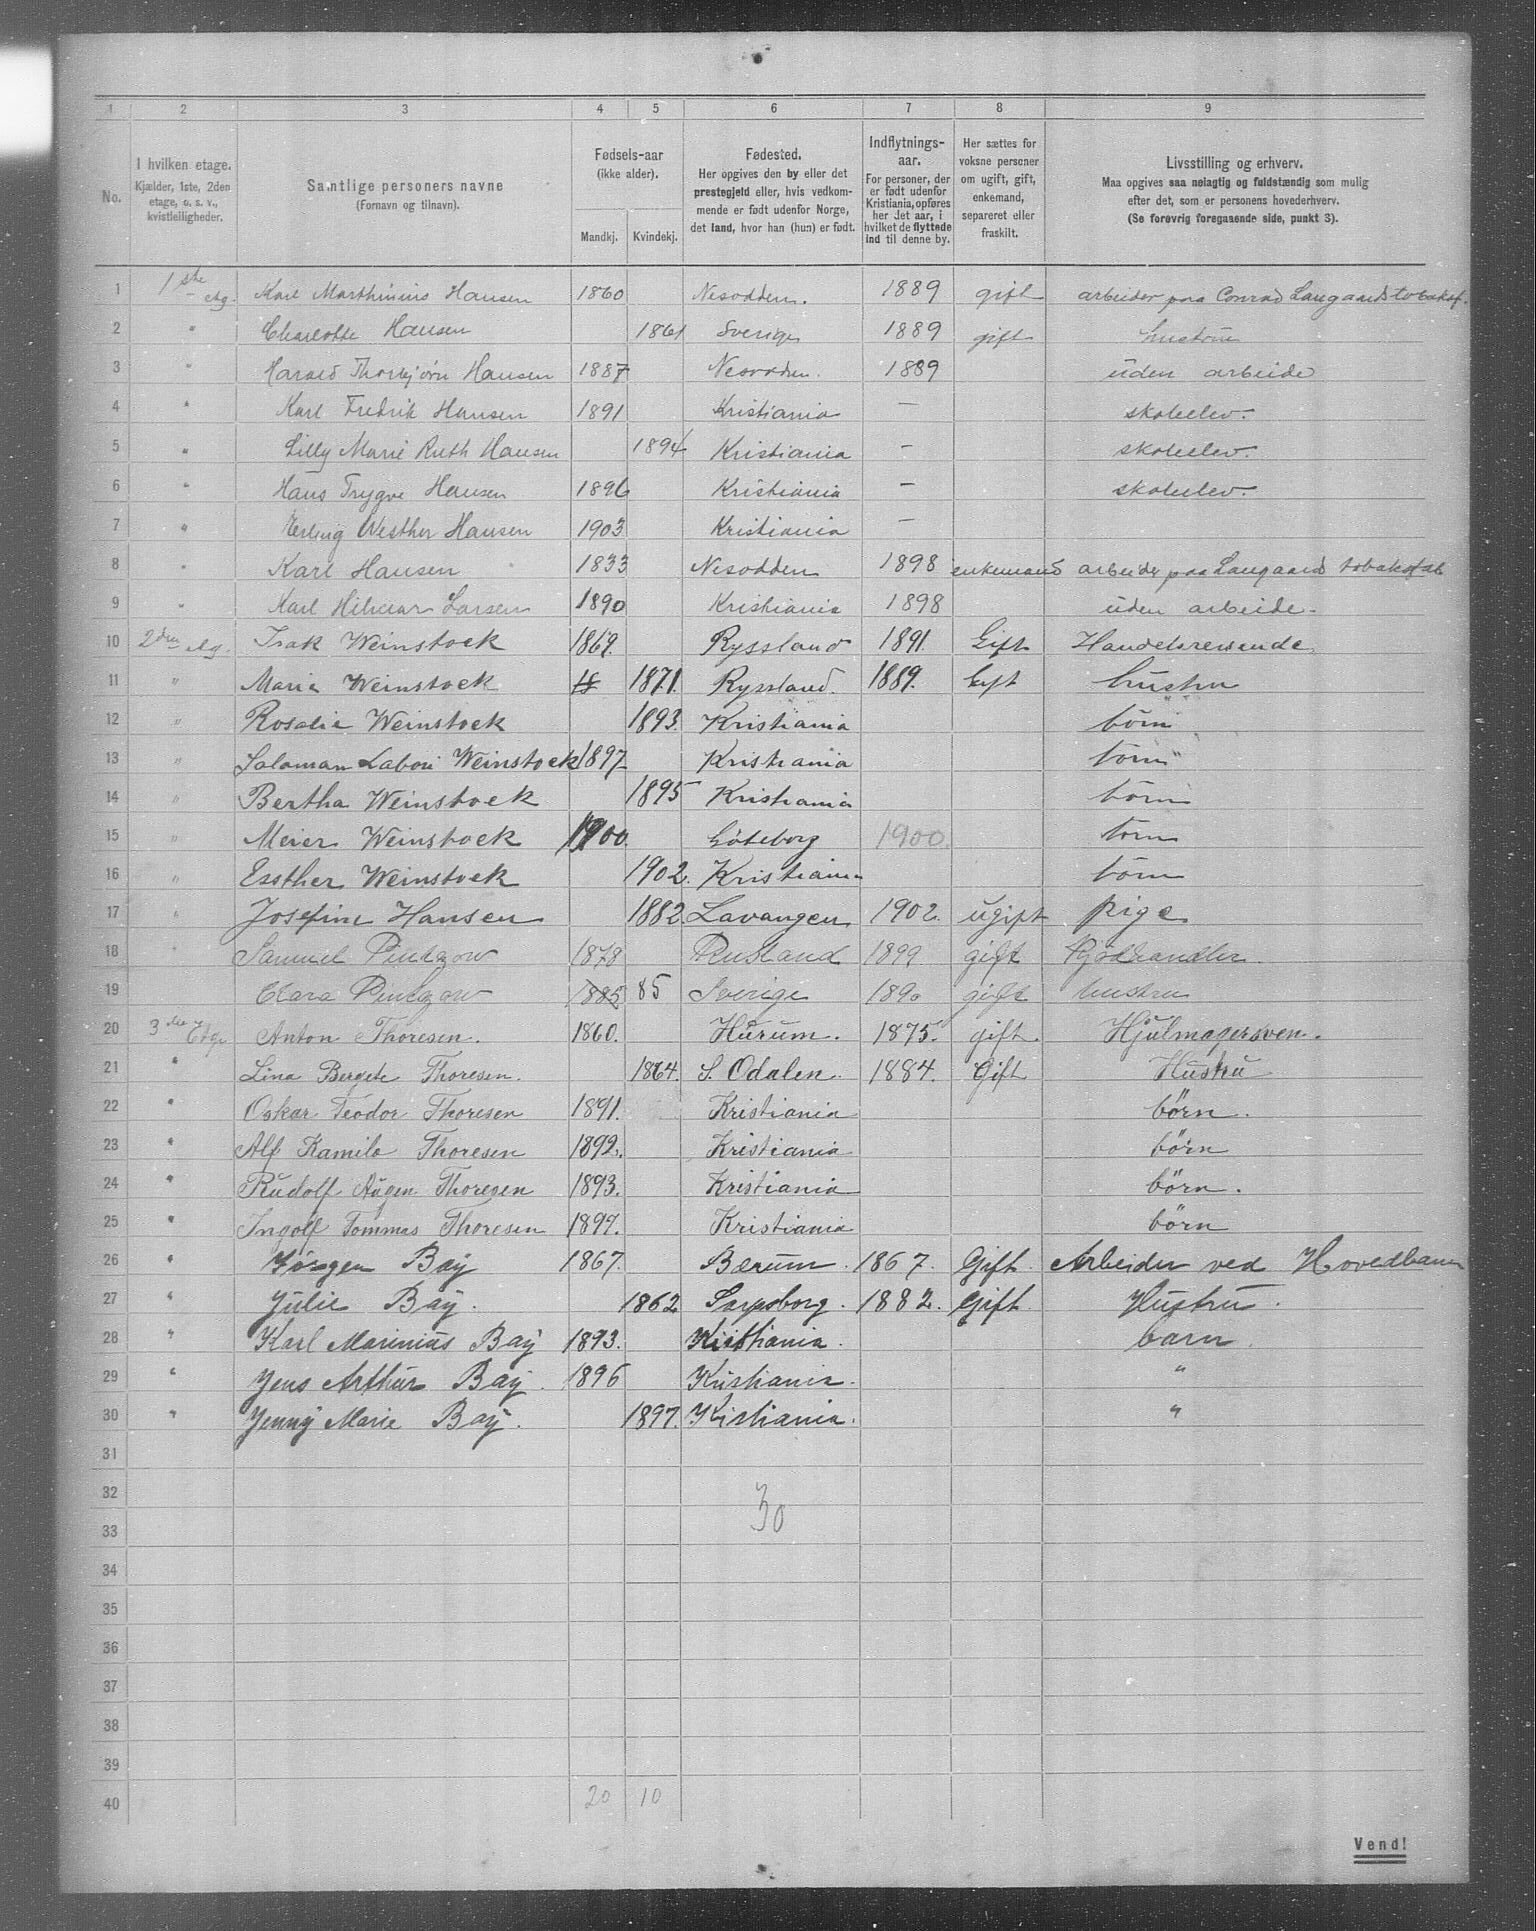 1 2 3 4 5 6 7 8 9
No. I hvilken etage. Kjælder, 1ste, 2den etage, o. s. v., kvistleiligheder. Samtlige personers navne (Fornavn og tilnavn). Fødsels-aar (ikke alder). Mandkj. Kvindekj. Fødested. Her opgives den by eller det prestegjeld eller, hvis vedkommende er født udenfor Norge, det land, hvor han (hun) er født. Indflytnings-aar. For personer, der er født udenfor Kristiania, opføres her det aar, i hvilket de flyttede ind til denne by. Her sættes for voksne personer om ugift, gift, enkemand, separeret eller fraskilt. Livsstilling og erhverv. Maa opgives saa nøiagtig og fuldstændig som mulig efter det, som er personens hovederhverv. (Se forøvrig foregaaende side, punkt 3).
1 1ste etg. Karl Marthinius Hansen 1860 Nesodden. 1889 gift arbeider paa Conrad Langaards tobaksf.
2 " Charlotte Hansen 1861 Sverige 1889 gift hustru
3 " Harald Thorbjørn Hansen 1887 Nesodden. 1889 uden arbeide
4 " Karl Fredrik Hansen 1891 Kristiania — skoleelev.
5 " Lilly Marie Ruth Hansen 1894 Kristiania — skoleelev.
6 " Hans Trygve Hansen 1896 Kristiania — skoleelev.
7 " Erling Westher Hansen 1903 Kristiania —
8 " Karl Hansen 1833 Nesodden 1898 enkemand arbeider paa Langaards tobaksfab
9 " Karl Hilmar Larsen 1890 Kristiania 1898 uden arbeide.
10 2den etg. Isak Weinstock 1869. Ryssland 1891. Gift Handelsreisende.
11 " Maria Weinstock 18 1871. Ryssland. 1889. Gift hustru
12 " Rosalie Weinstock 1893. Kristiania börn
13 " Salaman Labori Weinstock 1897 Kristiania börn
14 " Bertha Weinstock 1895 Kristiania börn
15 " Meier Weinstock 1900. Göteborg 1900. börn
16 " Essther Weinstock 1902. Kristiania börn
17 " Josefine Hansen 1882. Lavangen 1902. ugift pige
18 " Samuel Pintzow 1878 Rusland 1899 gift Kjødhandler.
19 Clara Pintzow 1885 85 Sverige 1890 gift hustru
20 3die Etge Anton Thoresen. 1860. Hurum. 1875. gift. Hjulmagersven.
21 " Lina Bergete Thoresen 1864. S. Odalen. 1884. Gift Hustru
22 " Oskar Teodor Thoresen 1891. Kristiania börn.
23 " Alf Kamilo Thoresen 1892. Kristiania börn
24 " Rudolf Augen Thoresen 1893. Kristiania börn.
25 " Ingolf Tommas Thoresen 1899. Kristiania börn
26 " Jörgen Bay 1867. Bærum. 1867. Gift. Arbeider ved Hovedbanen
27 " Julie Bay. 1862 Sarpsborg. 1882. Gift. Hustru.
28 " Karl Marinius Bay 1893. Kristiania. barn.
29 " Jens Arthur Bay. 1896 Kristiania. "
30 " Jenny Marie Bay. 1897. Kristiania. "
31
32
30
33
34
35
36
37
38
39
40 20 10
Vend!